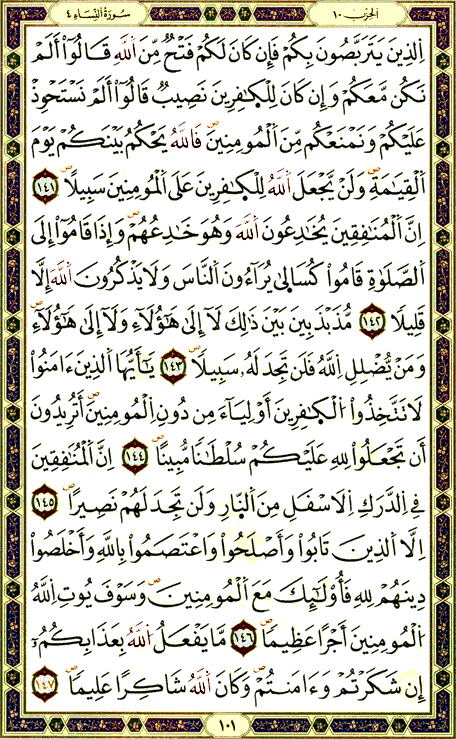 الحزب ١٠
سورة النساء ٤
اَ۬لذِينَ يَتَرَبَّصُونَ بِكُمْ فَإِن كَانَ لَكُمْ فَتْحٞ مِّنَ اَ۬للَّهِ قَالُوٓاْ أَلَمْ
نَكُن مَّعَكُمْ وَإِن كَانَ لِلْكٰ۪فِرِينَ نَصِيبٞ قَالُوٓاْ أَلَمْ نَسْتَحْوِذْ
عَلَيْكُمْ وَنَمْنَعْكُم مِّنَ اَ۬لْمُومِنِينَۖ فَاللَّهُ يَحْكُمُ بَيْنَكُمْ يَوْمَ
اَ۬لْقِيَٰمَةِۖ وَلَنْ يَّجْعَلَ اَ۬للَّهُ لِلْكٰ۪فِرِينَ عَلَى اَ۬لْمُومِنِينَ سَبِيلاًۖ ١٤١
اِنَّ اَ۬لْمُنَٰفِقِينَ يُخَٰدِعُونَ اَ۬للَّهَ وَهُوَ خَٰدِعُهُمْۖ وَإِذَا قَامُوٓاْ إِلَى
اَ۬لصَّلَوٰةِ قَامُواْ كُسَال۪يٰ يُرَآءُونَ اَ۬لنَّاسَ وَلَا يَذْكُرُونَ اَ۬للَّهَ إِلَّا
قَلِيلاًۖ ١٤٢ مُّذَبْذَبِينَ بَيْنَ ذَٰلِكَ لَآ إِلَىٰ هَٰٓؤُلَآءِ وَلَآ إِلَىٰ هَٰٓؤُلَآءِۖ
وَمَنْ يُّضْلِلِ اِ۬للَّهُ فَلَن تَجِدَ لَهُۥ سَبِيلاًۖ ١٤٣ يَٰٓأَيُّهَا اَ۬لذِينَ ءَامَنُواْ
لَا تَتَّخِذُواْ اُ۬لْكٰ۪فِرِينَ أَوْلِيَآءَ مِن دُونِ اِ۬لْمُومِنِينَۖ أَتُرِيدُونَ
أَن تَجْعَلُواْ لِلهِ عَلَيْكُمْ سُلْطَٰناٗ مُّبِيناًۖ ١٤٤ اِنَّ اَ۬لْمُنَٰفِقِينَ
فِي اِ۬لدَّرَكِ اِ۬لَاسْفَلِ مِنَ اَ۬لنّ۪ارِ وَلَن تَجِدَ لَهُمْ نَصِيراًۖ ١٤٥
اِلَّا اَ۬لذِينَ تَابُواْ وَأَصْلَحُواْ وَاعْتَصَمُواْ بِاللَّهِ وَأَخْلَصُواْ
دِينَهُمْ لِلهِ فَأُوْلَٰٓئِكَ مَعَ اَ۬لْمُومِنِينَۖ وَسَوْفَ يُوتِ اِ۬للَّهُ
اُ۬لْمُومِنِينَ أَجْراً عَظِيماٗۖ ١٤٦ مَّا يَفْعَلُ اُ۬للَّهُ بِعَذَابِكُمُۥٓ
إِن شَكَرْتُمْ وَءَامَنتُمْۖ وَكَانَ اَ۬للَّهُ شَاكِراً عَلِيماٗۖ ١٤٧
١٠١